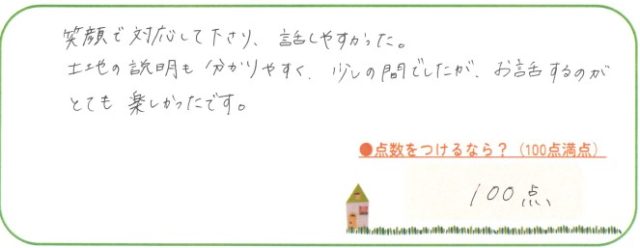 笑顔で対応して下さり、話しやすかった。
土地の説明も分かりやすく、少しの間でしたが、お話するのが
とても楽しかったです。
●点数をつけるなら？（100点満点）
100点